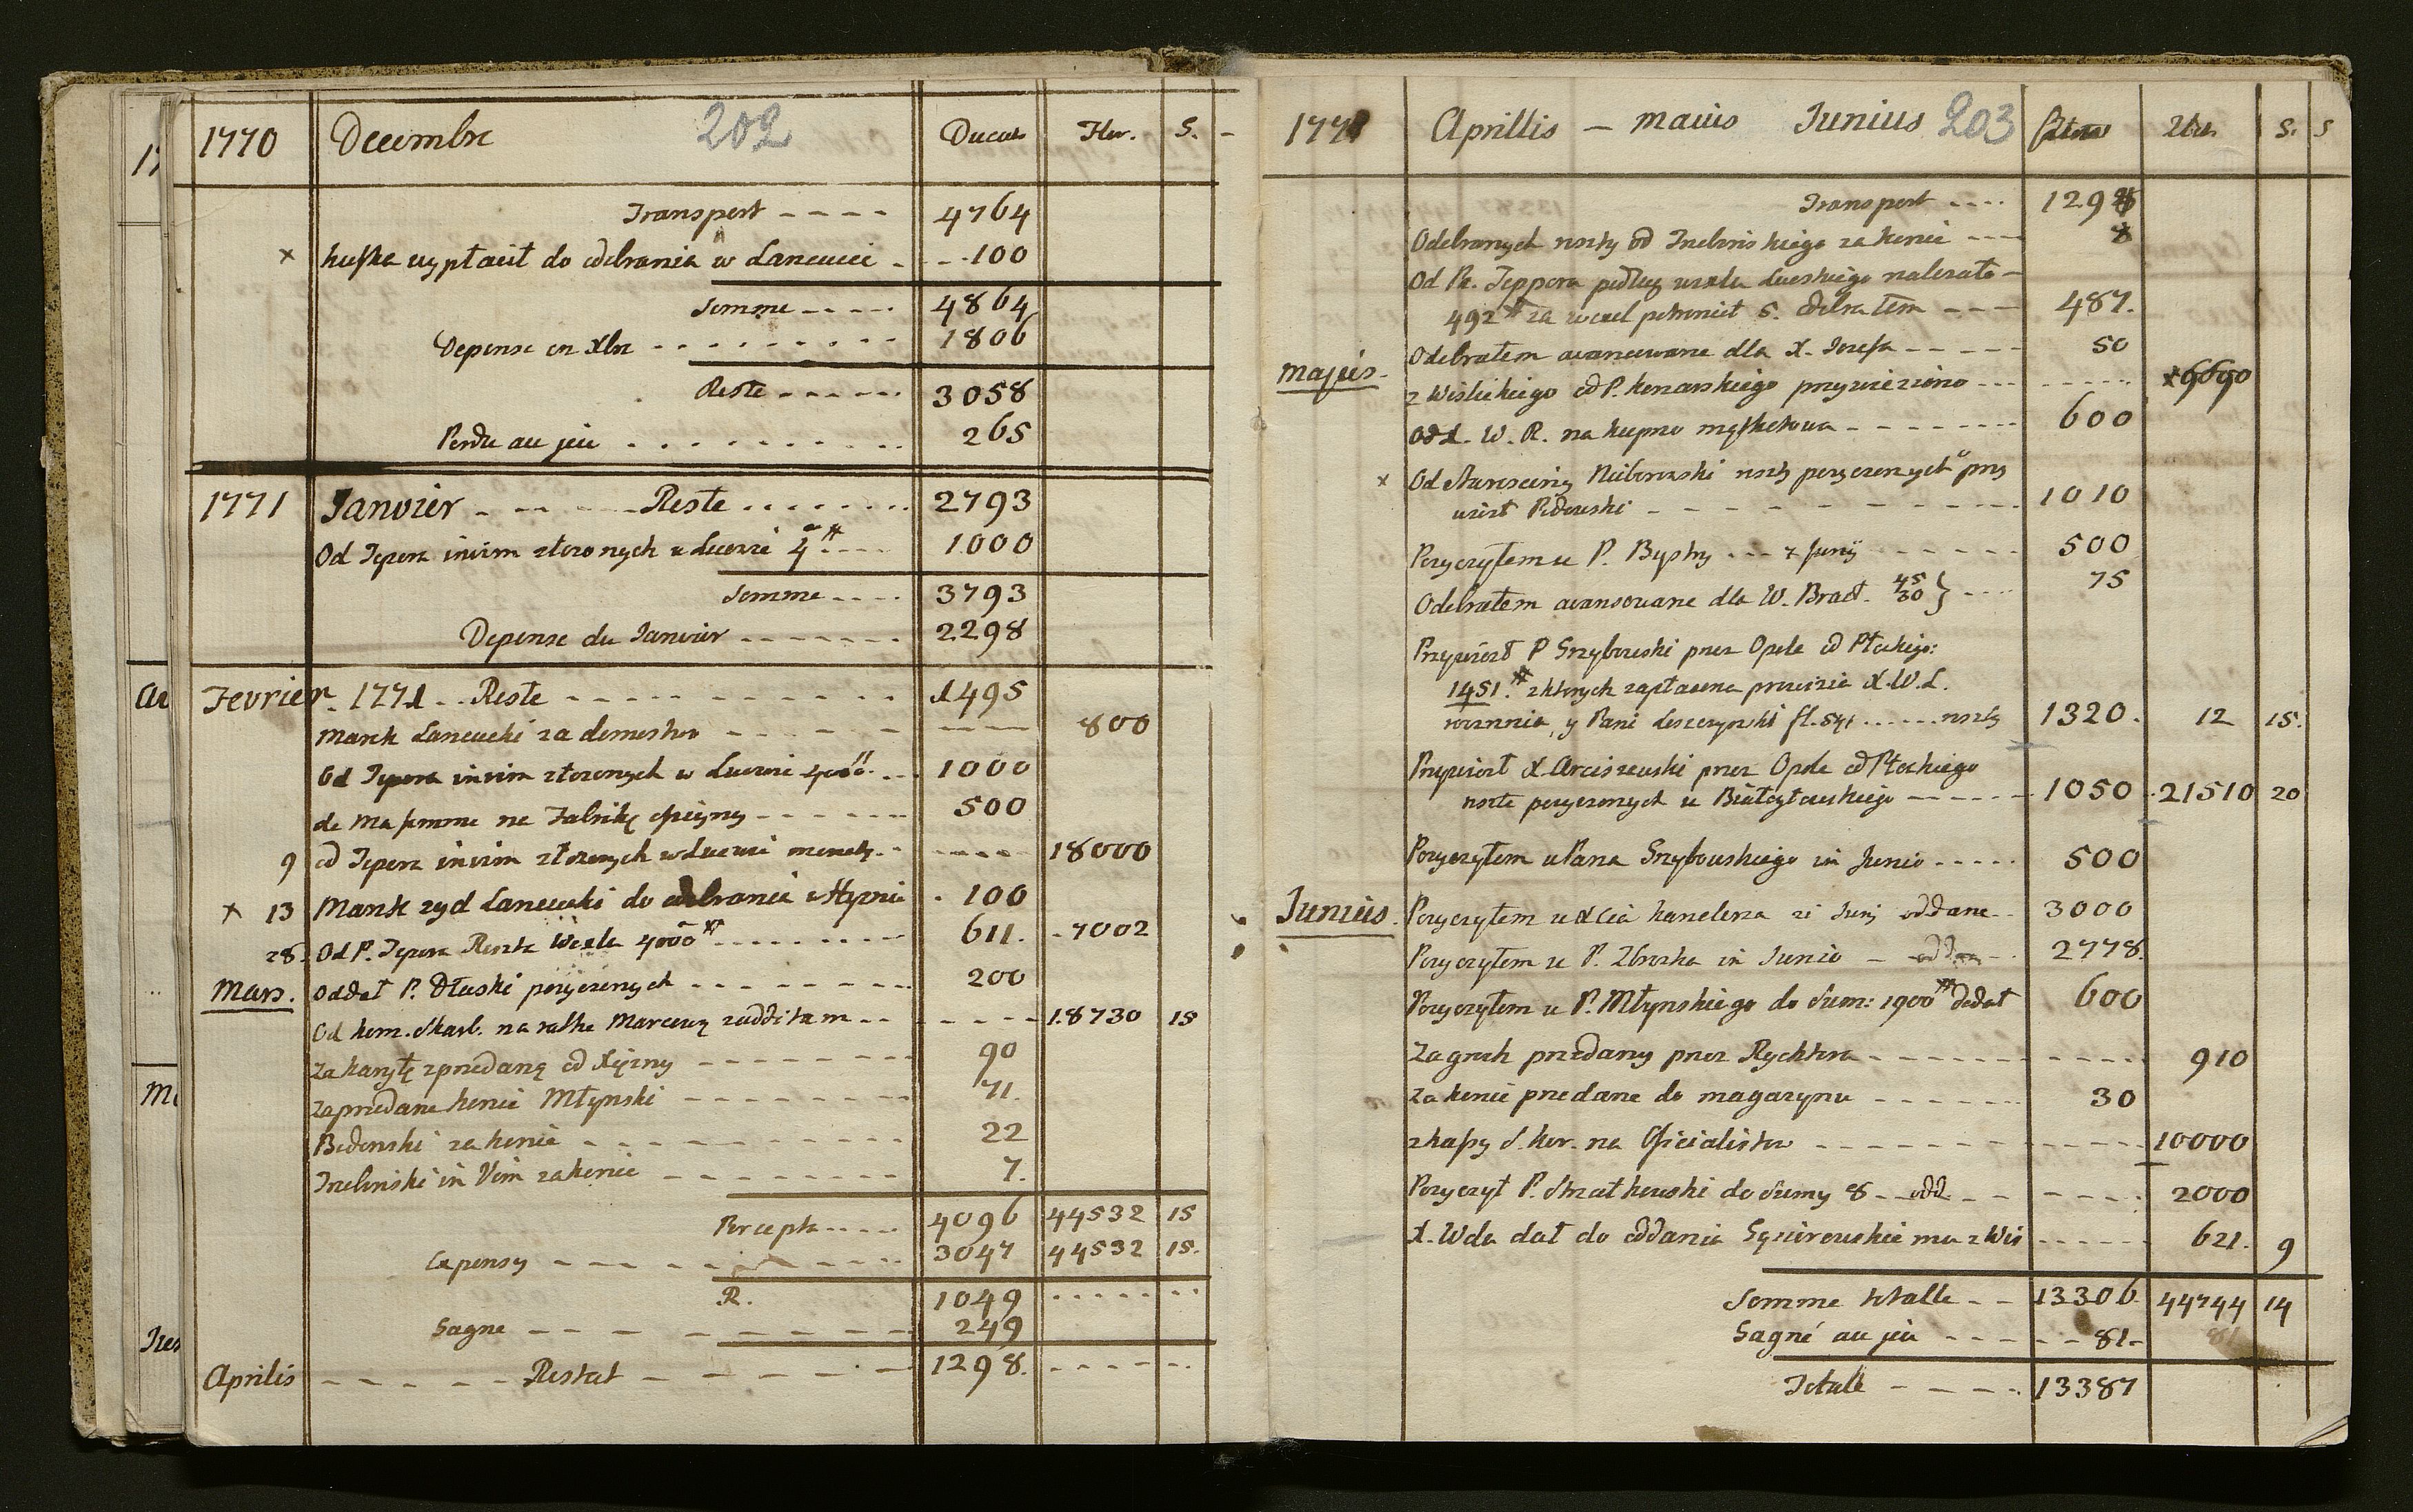 1770 Decembre 202 Ducats Flor. S. -
Transport - - - - 4764
× kuska wypłacił do odebrania w Lancucie - - - 100
Somme - - - - 4864
Depense en Xbr - - - - 1806
Reste - - - - 3058
Perdu au jeu - - - - 265
1771 Janvier - - - Reste - - - - 2793
Od Tepera in vim złozonych u 4 # - - - 1000
Somme - - - - 3793
Depense du Janvier - - - - 2298
Fevrier. 1771 . . Reste - - - - 1495
Marek Lancucki za - - - - 800
Od Tepera in vim złozonych w 4000 # - - - 1000
de ma femme na Fabrikę - - - - 500
9 od Tepera in vim złozonych w - - - - 18000
× 13 Marek zyd Lancucki do odebrania - 100
28. Od P. Tepera Reszta Wexlu 4000 # - - - - 611. - 7002
Mars. Oddał P. Dłuski pożyczonych - - - - 200
Od kom. Skarb. na ratke Marcową - - - - 18730 15
Za karytę zprzedaną od Xięzny - - - - 90
Zaprzedane konie Młynski - - - - 71.
za konie - - - - 22
in Vim za konie - - - - 7.
Percepta - - - - 4096 44532 15
Expensy - - - - 3047 44532 15.
R. 1049 - - - -
Gagne - - - - 249
Aprilis - - - - Restat - - - - 1298. - - - -
1771 Aprillis - maius Junius 203 S. S
Transport - - - - 1298
Odebranych reszty od za konie - - - 8
Od P. Teppera podług wexlu należało -
492 # za wexel potronił S. odebrałem - - - 487.
Odebrałem avancowane dla X. Jozefa - - - - 50
majus. z Wislickiego od P. Konarskiego przywieziono - - - - 9690
Od X. W. R. na kupno - - - - 600
× Od Starosciny reszty pozyczonych przy
wiozł - - - - 1010
Pozyczyłem u P. Bystry - - - 7 Junij - - - - 500
Odebrałem avansowane dla W. Bract. 45 30 } - - - 75
Przywiozł P Grzybowski przez Opole od Płockiego:
1451. # z ktorych zapłacona prowizia X. W. L.
y Pani Leszczynski fl. - - - reszty 1320. 12 15.
Przywiozł X. Arciszewski przez Opole od Płockiego
reszte pozyczonych u Białozłowskiego - - - - 1050 21510 20
Pozyczyłem u Pana Grzybowskiego in Junio - - - - 500
Junius. Pozyczyłem u Xcia kanclerza Junj oddane - - 3000
Pozyczyłem u P. Zbroska in Junio - - - 2778.
Pozyczyłem u P. Młynskiego do Sum: 1900 # dodał 600
Za groch przedany przez Rychtera - - - - 910
Za konie przedane do magazynu - - - - 30
z kassy S. kor. na Oficialistow - - - - 10000
Pozyczył P. Strzałkowski do Sumy 8 - odd. - - - 2000
X. Wda dał do oddania - - - - 621. 9
Somme totalle - - - 13306 44744 14
Gagné au jeu - - - - 81 -
Totale - - - - 13387